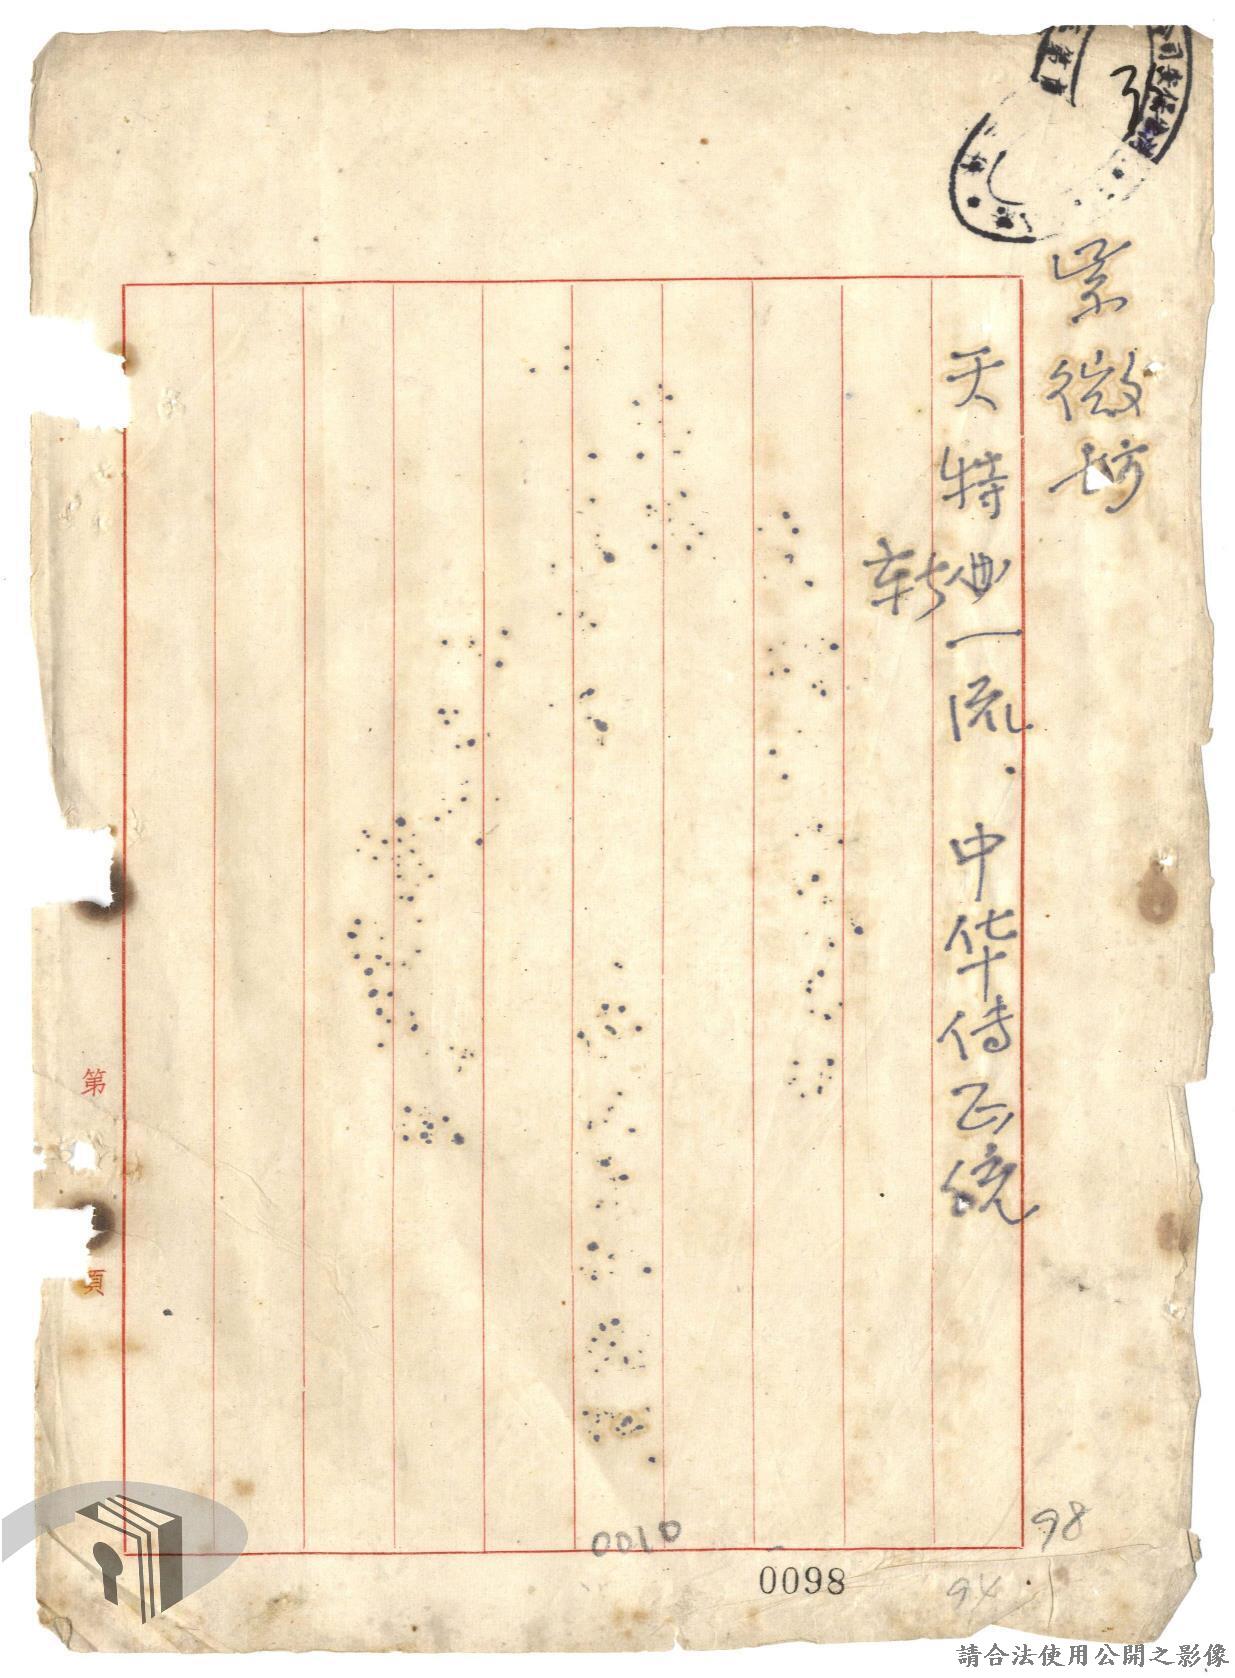 紫微坊
天特曲一流．中华传正统
转
第
頁
0010
0098
98
94
請合法使用公開之影像